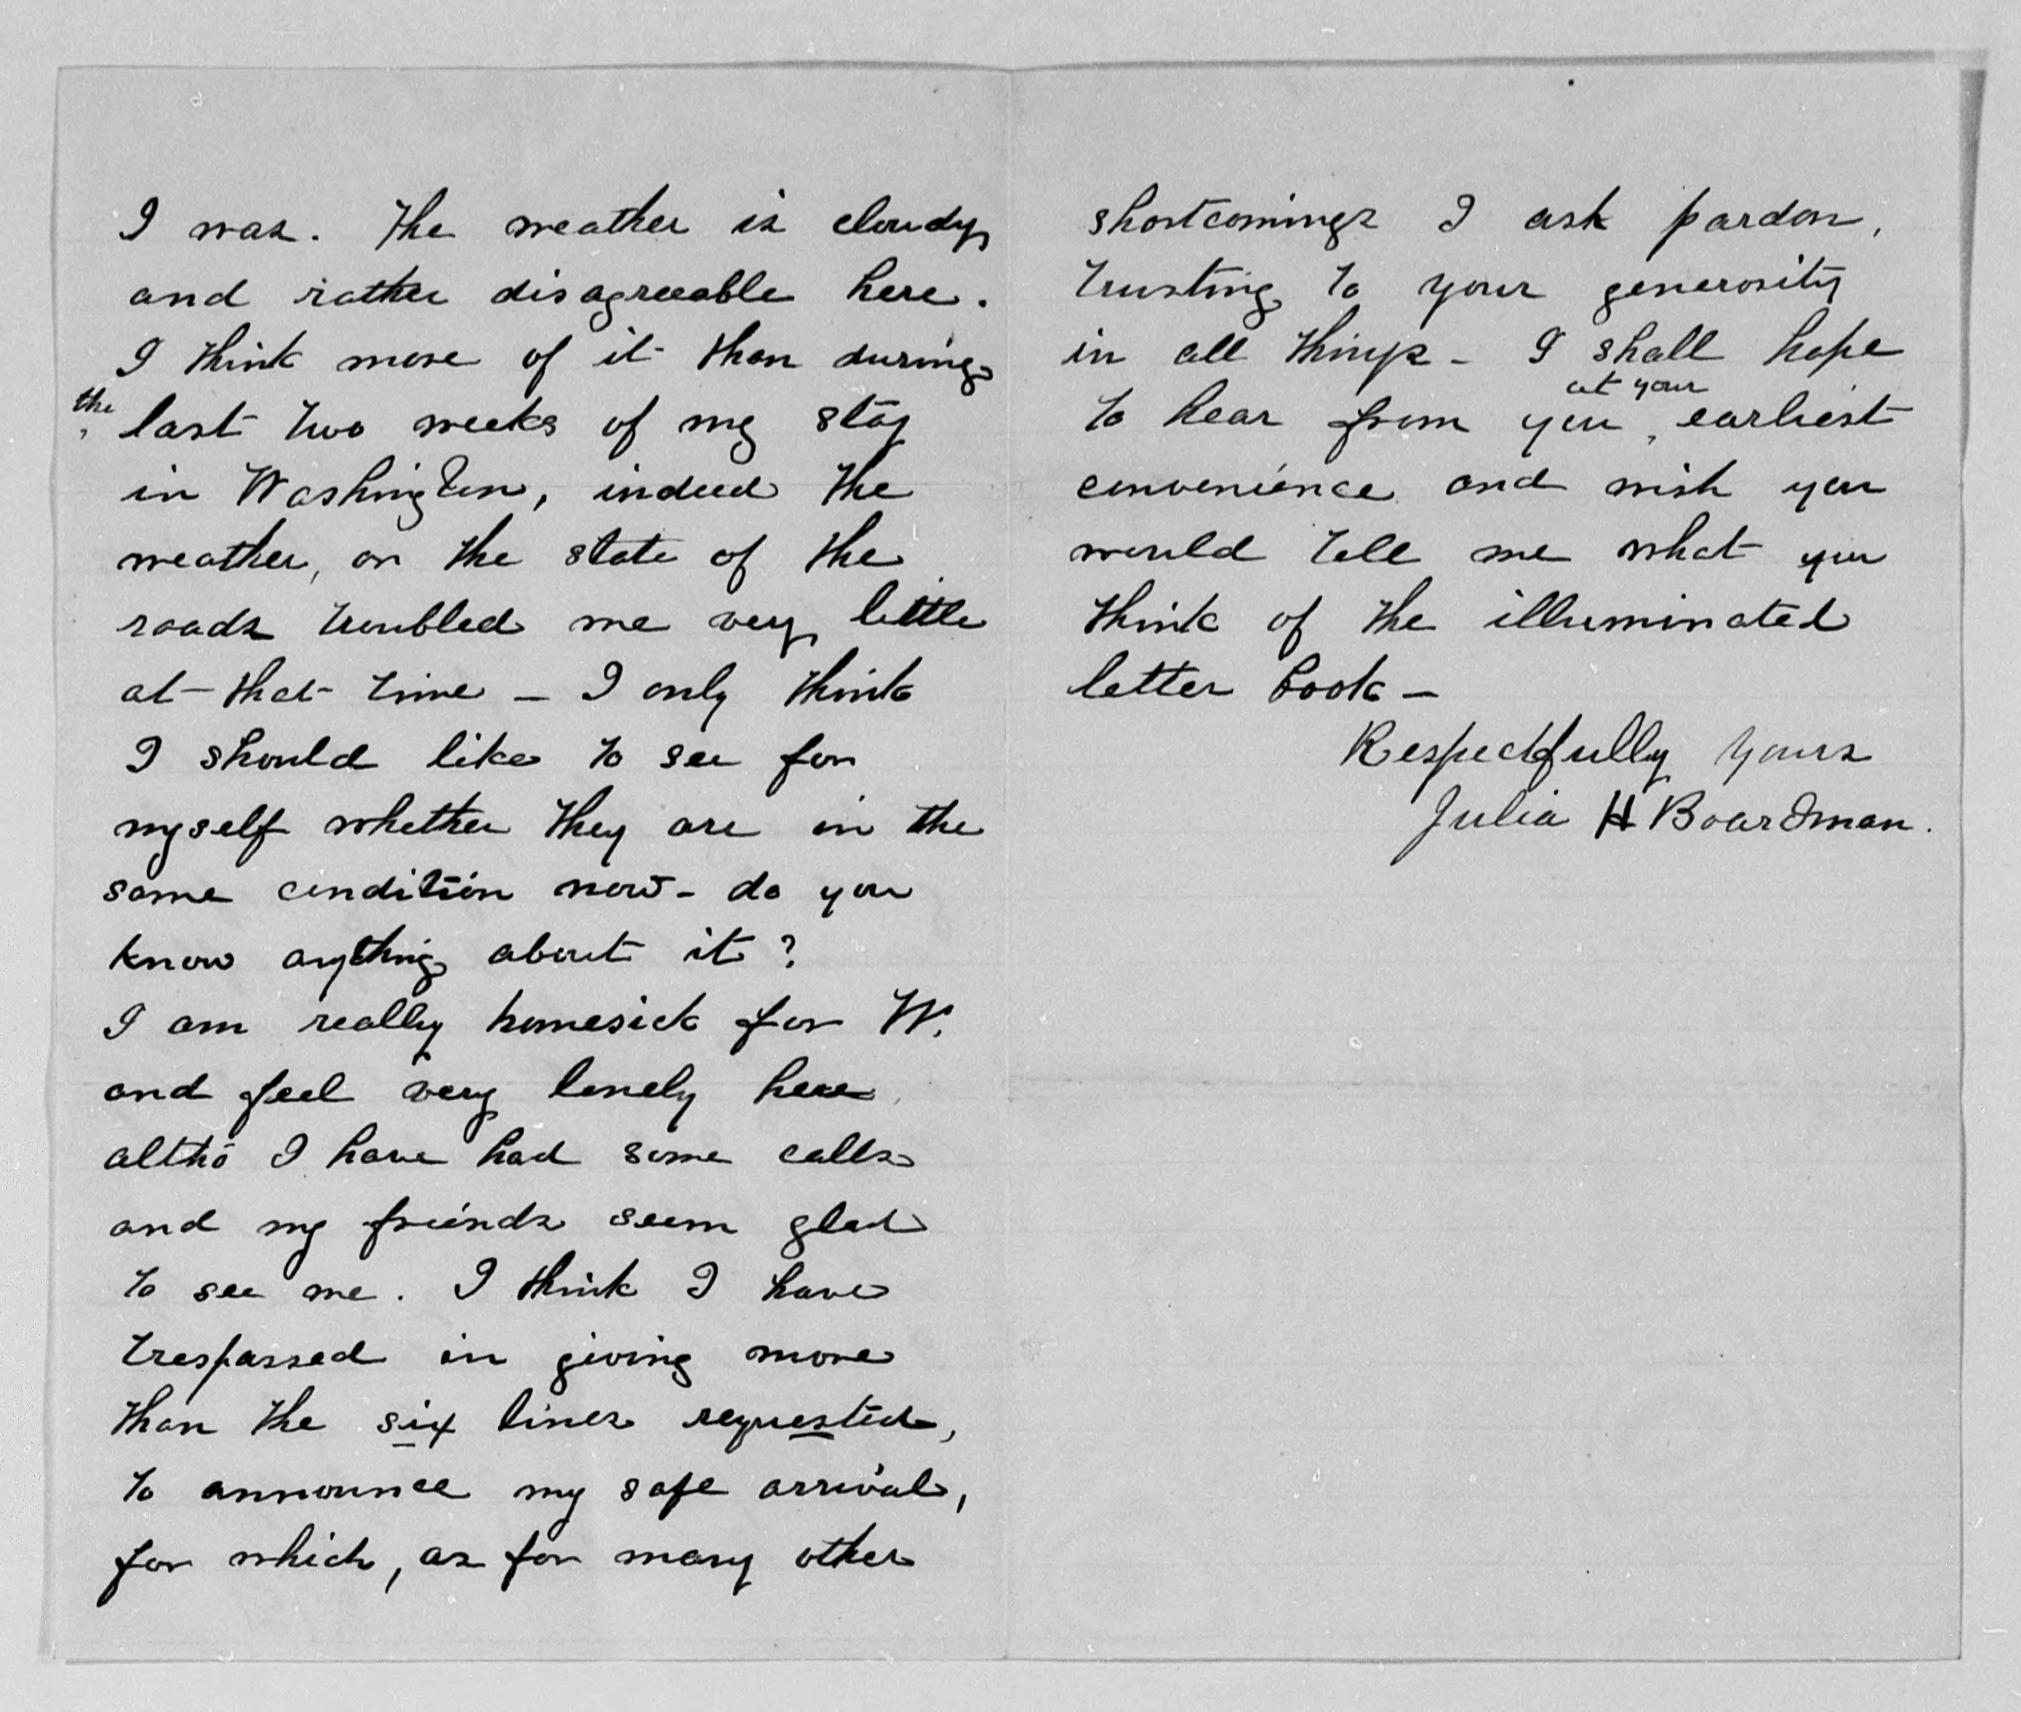 I was. The weather is cloudy
and rather disagreeable here.
I think more of it than during
the last two weeks of my stay
in Washington, indeed the
weather, or the state of the
roads troubled me very little
at that time – I only think
I should like to see for
myself whether they are in the
same condition now – do you
know anything about it?
I am really homesick for W.
and feel very lonely here
altho I have had some calls
and my friends seem glad
to see me. I think I have
trespassed in giving more
than the six lines requested,
to announce my safe arrival,
for which, as for many other
shortcomings I ask pardon,
trusting to your generosity
in all things – I shall hope
to hear from you at your earliest
convenience and wish you
would tell me what you
think of the illuminated
letter book –
Respectfully yours
Julia H Boardman.